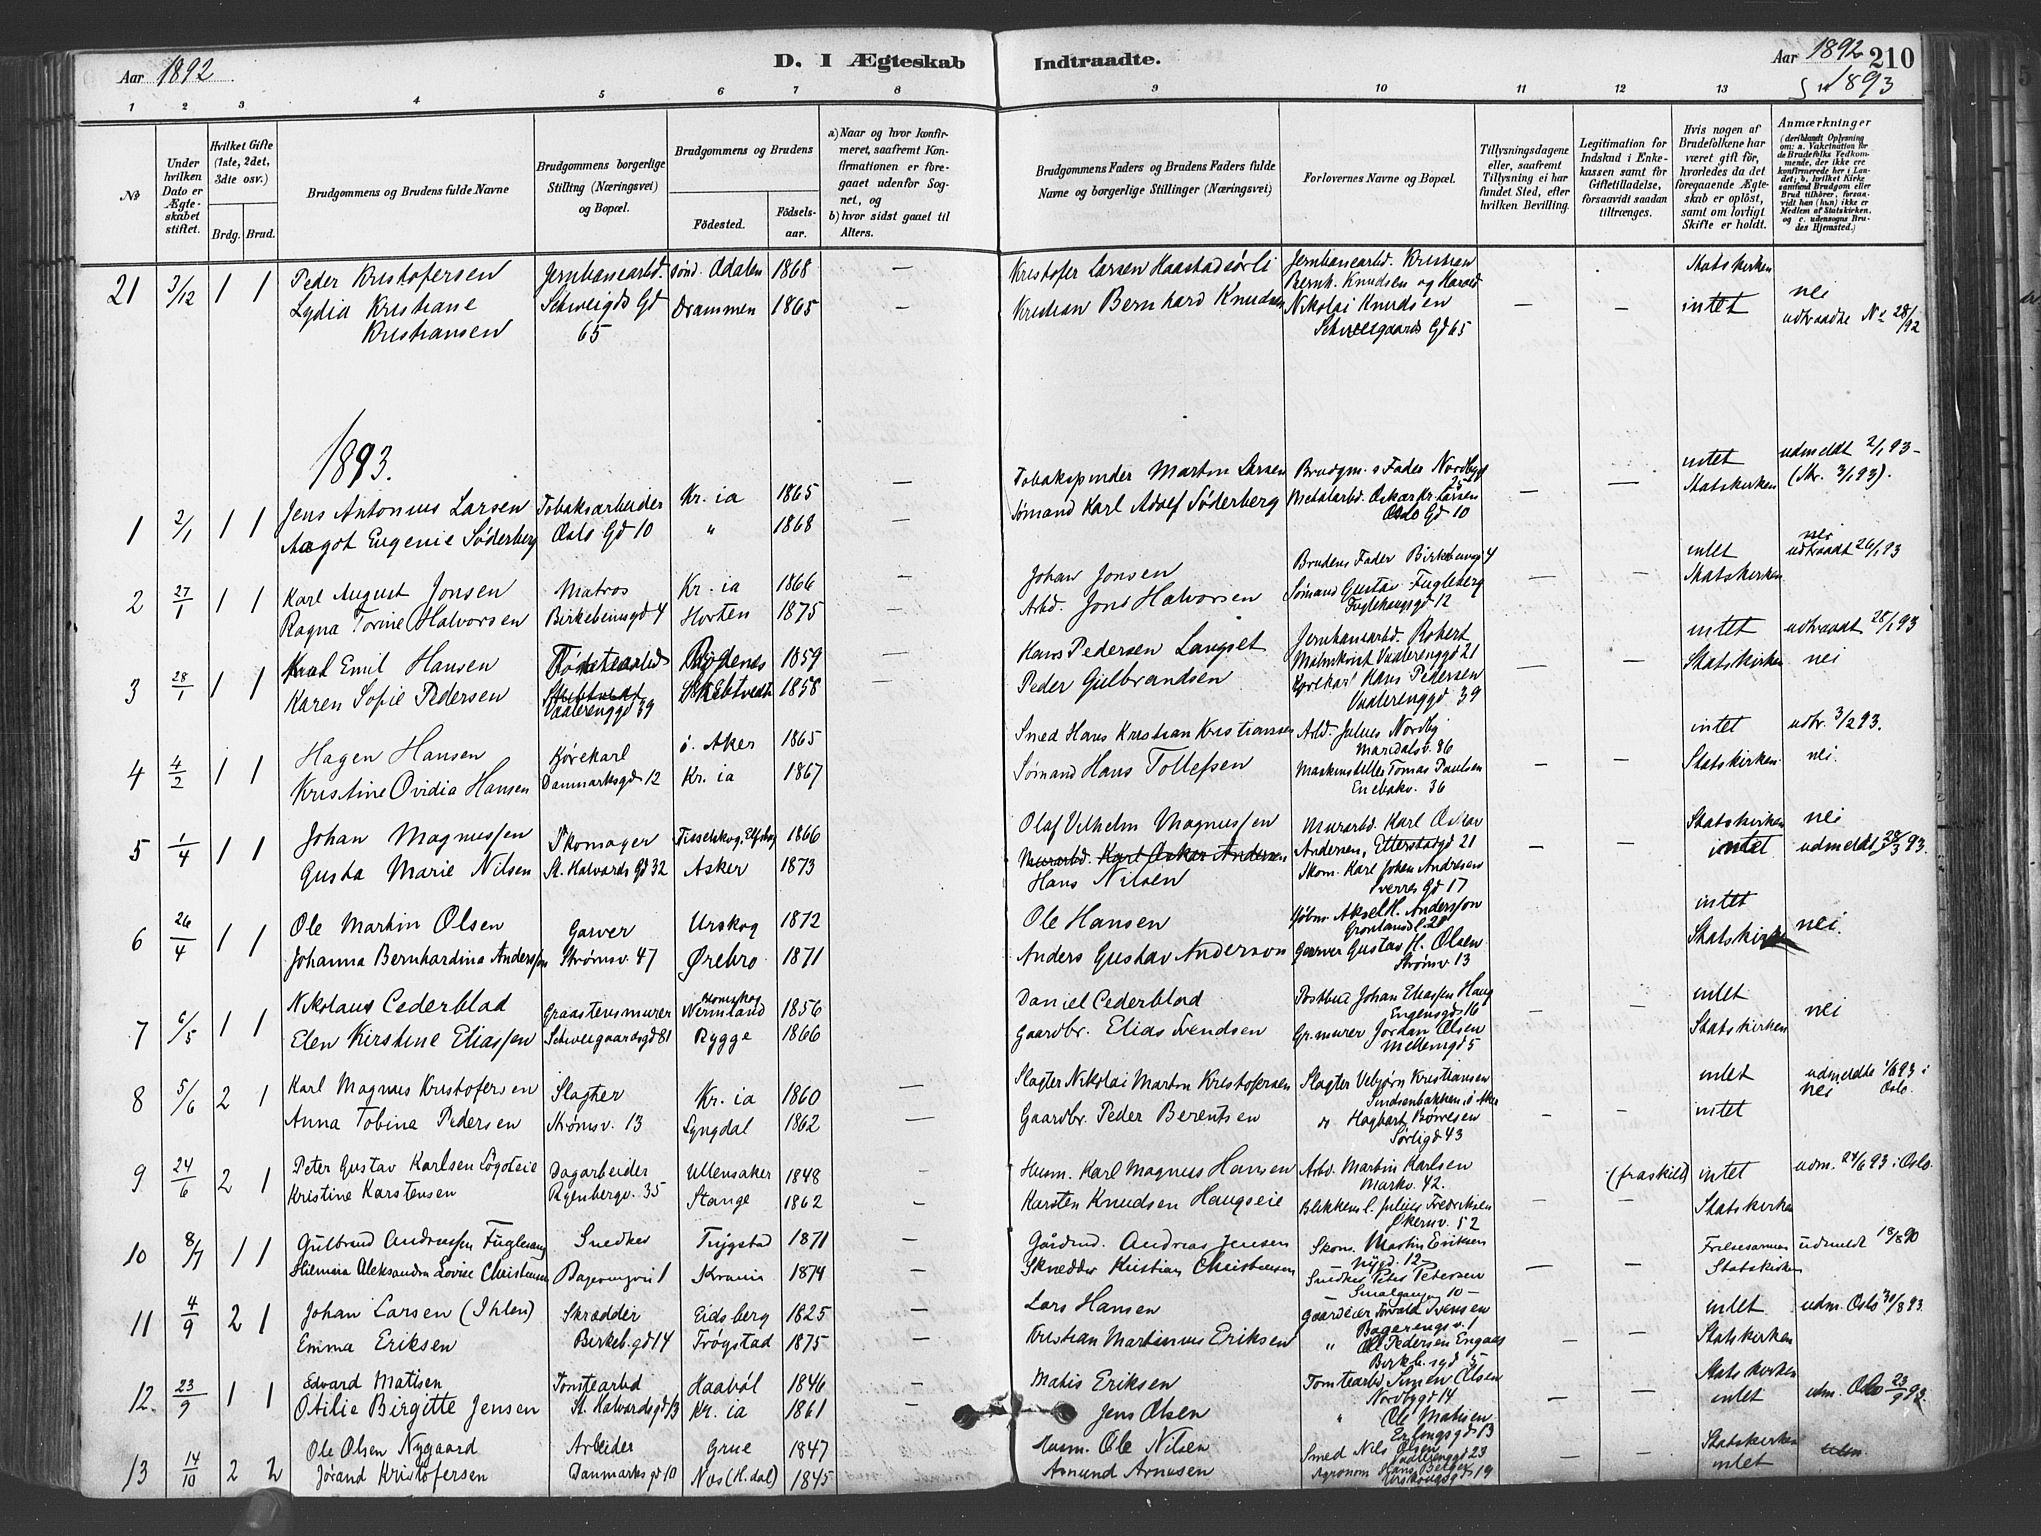 Aar 1892
D. I Ægteskab
Indtraadte.
Aar 1892 210
1893
1 2 3 4 5 6 7 8 9 10 11 12 13
No
Under hvilken Dato er Ægteskabet stiftet.
Hvilket Gifte (1ste, 2det, 3die osv.)
Brdg. Brud.
Brudgommens og Brudens fulde Navne
Brudgommens borgerlige Stilling (Næringsvei) og Bopæl.
Brudgommens og Brudens
Födested. Födselsaar.
a) Naar og hvor konfirmeret, saafremt Konfirmationen er foregaaet udenfor Sognet, og
b) hvor sidst gaaet til Alters.
Brudgommens Faders og Brudens Faders fulde Navne og borgerlige Stillinger (Næringsvei)
Forlovernes Navne og Bopæl.
Tillysningsdagene eller, saafremt Tillysning ei har fundet Sted, efter hvilken Bevilling.
Legitimation for Indskud i Enkekassen samt for Giftetilladelse, forsaavidt saadan tiltrænges.
Hvis nogen af Brudefolkene har været gift för, hvorledes da det foregaaende Ægteskab er oplöst, samt om lovligt Skifte er holdt.
Anmærkninger
(deriblandt Oplysning om: a. Vakcination for de Brudefolks Vedkommende, der ikke ere konfirmerede her i Landet; b. hvilket Kirkesamfund Brudgom eller Brud tilhörer, forsaavidt han (hun) ikke er Medlem af Statskirken, og c. udensogns Brudes Hjemsted.)
21 3/12 1 1 Peder Kristofersen Jernbanearbd. Sønd. Odalen 1868 — Kristofer Larsen Haastadsörli Jernbanearbd. Kristian Statskirken
Bernh. Knudsen og Harald nei
Lydia Kristiane Schweigds Gd Drammen 1865 Kristian Bernhard Knudsen Nikolai Knudsen — — intet
Kristiansen 65 Schweigaards Gd 65 udtraadte No 28/92
1893.
1 2/1 1 1 Jens Antonius Larsen Tobaksarbeider Kr.ia 1865 — Tobakspinder Martin Larsen Brudgm.s Fader Nordbygd 25 intet udmeldt 2/1 93 –
Aagot Eugenie Söderberg Oslo Gd 10 " 1868 — Sømand Karl Adolf Söderberg Metalarbd. Oskar Kr. Larsen — — Statskirken (Skr. 3/1 93).
Oslo Gd 10
2 27/1 1 1 Karl August Jonsen Matros Kr.ia 1866 — Johan Jonsen Brudens Fader Birkebeingd 4 intet nei udtraadt 26/1 93
Ragna Torine Halvorsen Birkebeinsgd 4 Horten 1875 — Arbd. Jons Halvorsen Sømand Gustav Fugleberg — — Statskirken
Fuglehaugsgd 12
3 28/1 1 1 Emil Hansen 1859 — Hans Pedersen Langset Jernbanearbd. Robert intet udtraadt 28/1 93
Malmkvist Vaalerenggd 21
Karen Sofie Pedersen Vaalerenggd 39 1858 — Peder Gulbrandsen Kjørekarl Hans Pedersen — — Statskirken nei
Vaalerenggd 39
4 4/2 1 1 Hagen Hansen Kjørekarl ö. Aker 1865 — Smed Hans Kristian Kristiansen Arbd. Julius Nordby intet udtr. 3/2 93.
Maridalsv. 86
Kristine Ovidia Hansen Danmarksgd 12 Kr.ia 1867 — Sømand Hans Tollefsen Maskinstiller Tomas Paulsen — — Statskirken nei.
Enebakv. 36
5 1/4 1 1 Johan Magnussen Skomager Tisselskog, Elfsborg 1866 — Olaf Vilhelm Magnussen Murarbd. Karl Oskar Statskirken nei
Murarbd. Karl Oskar Andersen Andersen, Etterstadgd 21 intet udmeldt 28/3 93.
Gusta Marie Nilsen St. Halvards Gd 32 Asker 1873 — Hans Nilsen Skom. Karl Johan Andresen — —
Sverres Gd 17
6 26/4 1 1 Ole Martin Olsen Garver Urskog 1872 Ole Hansen Aksel H. Andersson intet
Johanna Bernhardina Andersson Strømsv. 47 Ørebro 1871 Anders Gustav Anderson Garver Gustav H. Olsen Statskirken nei.
Strømv. 13
7 6/5 1 1 Nikolaus Cederblad Graastensmurer Vermland 1856 Daniel Cederblad Postbud Johan Eliassen Haug intet
Engensgd 16
Elen Kirstine Eliassen Schweigaardsgd 81 Rygge 1866 Gaardbr. Elias Svendsen Gr.murer Jordan Olsen — — Statskirken nei
Mellemgd 5
8 5/6 2 1 Karl Magnus Kristofersen Slagter Kr.ia 1860 — Slagter Nikolai Martin Kristofersen Slagter Vebjörn Kristiansen intet udmeldte 1/6 93 i Oslo.
Smedsenbakken, ö. Aker nei
Anna Tobina Pedersen Strømsv. 13 Lyngdal 1862 — Gaardbr. Peder Berentsen Hagbart Börresen — — intet
Sörligd 43
9 24/6 2 1 Peter Gustav Karlsen Dagarbeider Ullensaker 1848 Husm. Karl Magnus Hansen Arb. Martin Karlsen (fraskilt) intet udm. 24/6 93 i Oslo.
Markv. 42.
Kristine Karstensen Ryenbergv. 35 Stange 1862 Karsten Knudsen Haugseie Blikkensl. Julius Fredriksen — — Statskirken
Økernv. 52
10 8/7 1 1 Gulbrand Andreassen Fuglesang Snedker Trygstad 1871 — Gårdmd. Andreas Jensen Skom. Martin Eriksen Frelsesarmeen udmeldt 18/8 90
Nygd. 12
Aleksandra Lovise Christensen Bagerengveien 1 Krania 1874 Skredder Kristian Christensen Snedker Peter Petersen — — Statskirken
Smalgangen 10 –
11 4/9 2 1 Johan Larsen (Ihlen) Skrædder Eidsberg 1825 — Lars Hansen Gaardeier Torvald Svensen intet udm. Oslo 30/8 93.
Bagerengsv. 1
Emma Eriksen Birkeb.gd 14 Trögstad 1875 — Kristian Martinius Eriksen " Ole Pedersen — — Statskirken
Birkb.sgd 5
12. 23/9 1 1 Edvard Matisen Tomtearbd Haaböl 1846 — Matis Eriksen Tomtearbd Simen Olsen Statskirken
Nordbygd 14
Otilie Birgitte Jensen St. Halvardsgd 13 Kr.ia 1861 — Jens Olsen " Ole Matisen — — intet udm. Oslo 23/9 93.
Erlingsgd 13
13 14/10 2 2 Ole Olsen Nygaard Arbeider Grue 1847 Husm. Ole Nilsen Smed Nils Olsen Statskirken udm
Vaalerenggd 23
Jörand Kristofersen Danmarksgd 10 Nes (H.dal) 1845 Asmund Arnesen Agronom Hans Berger — — intet
Urskougsgd 19